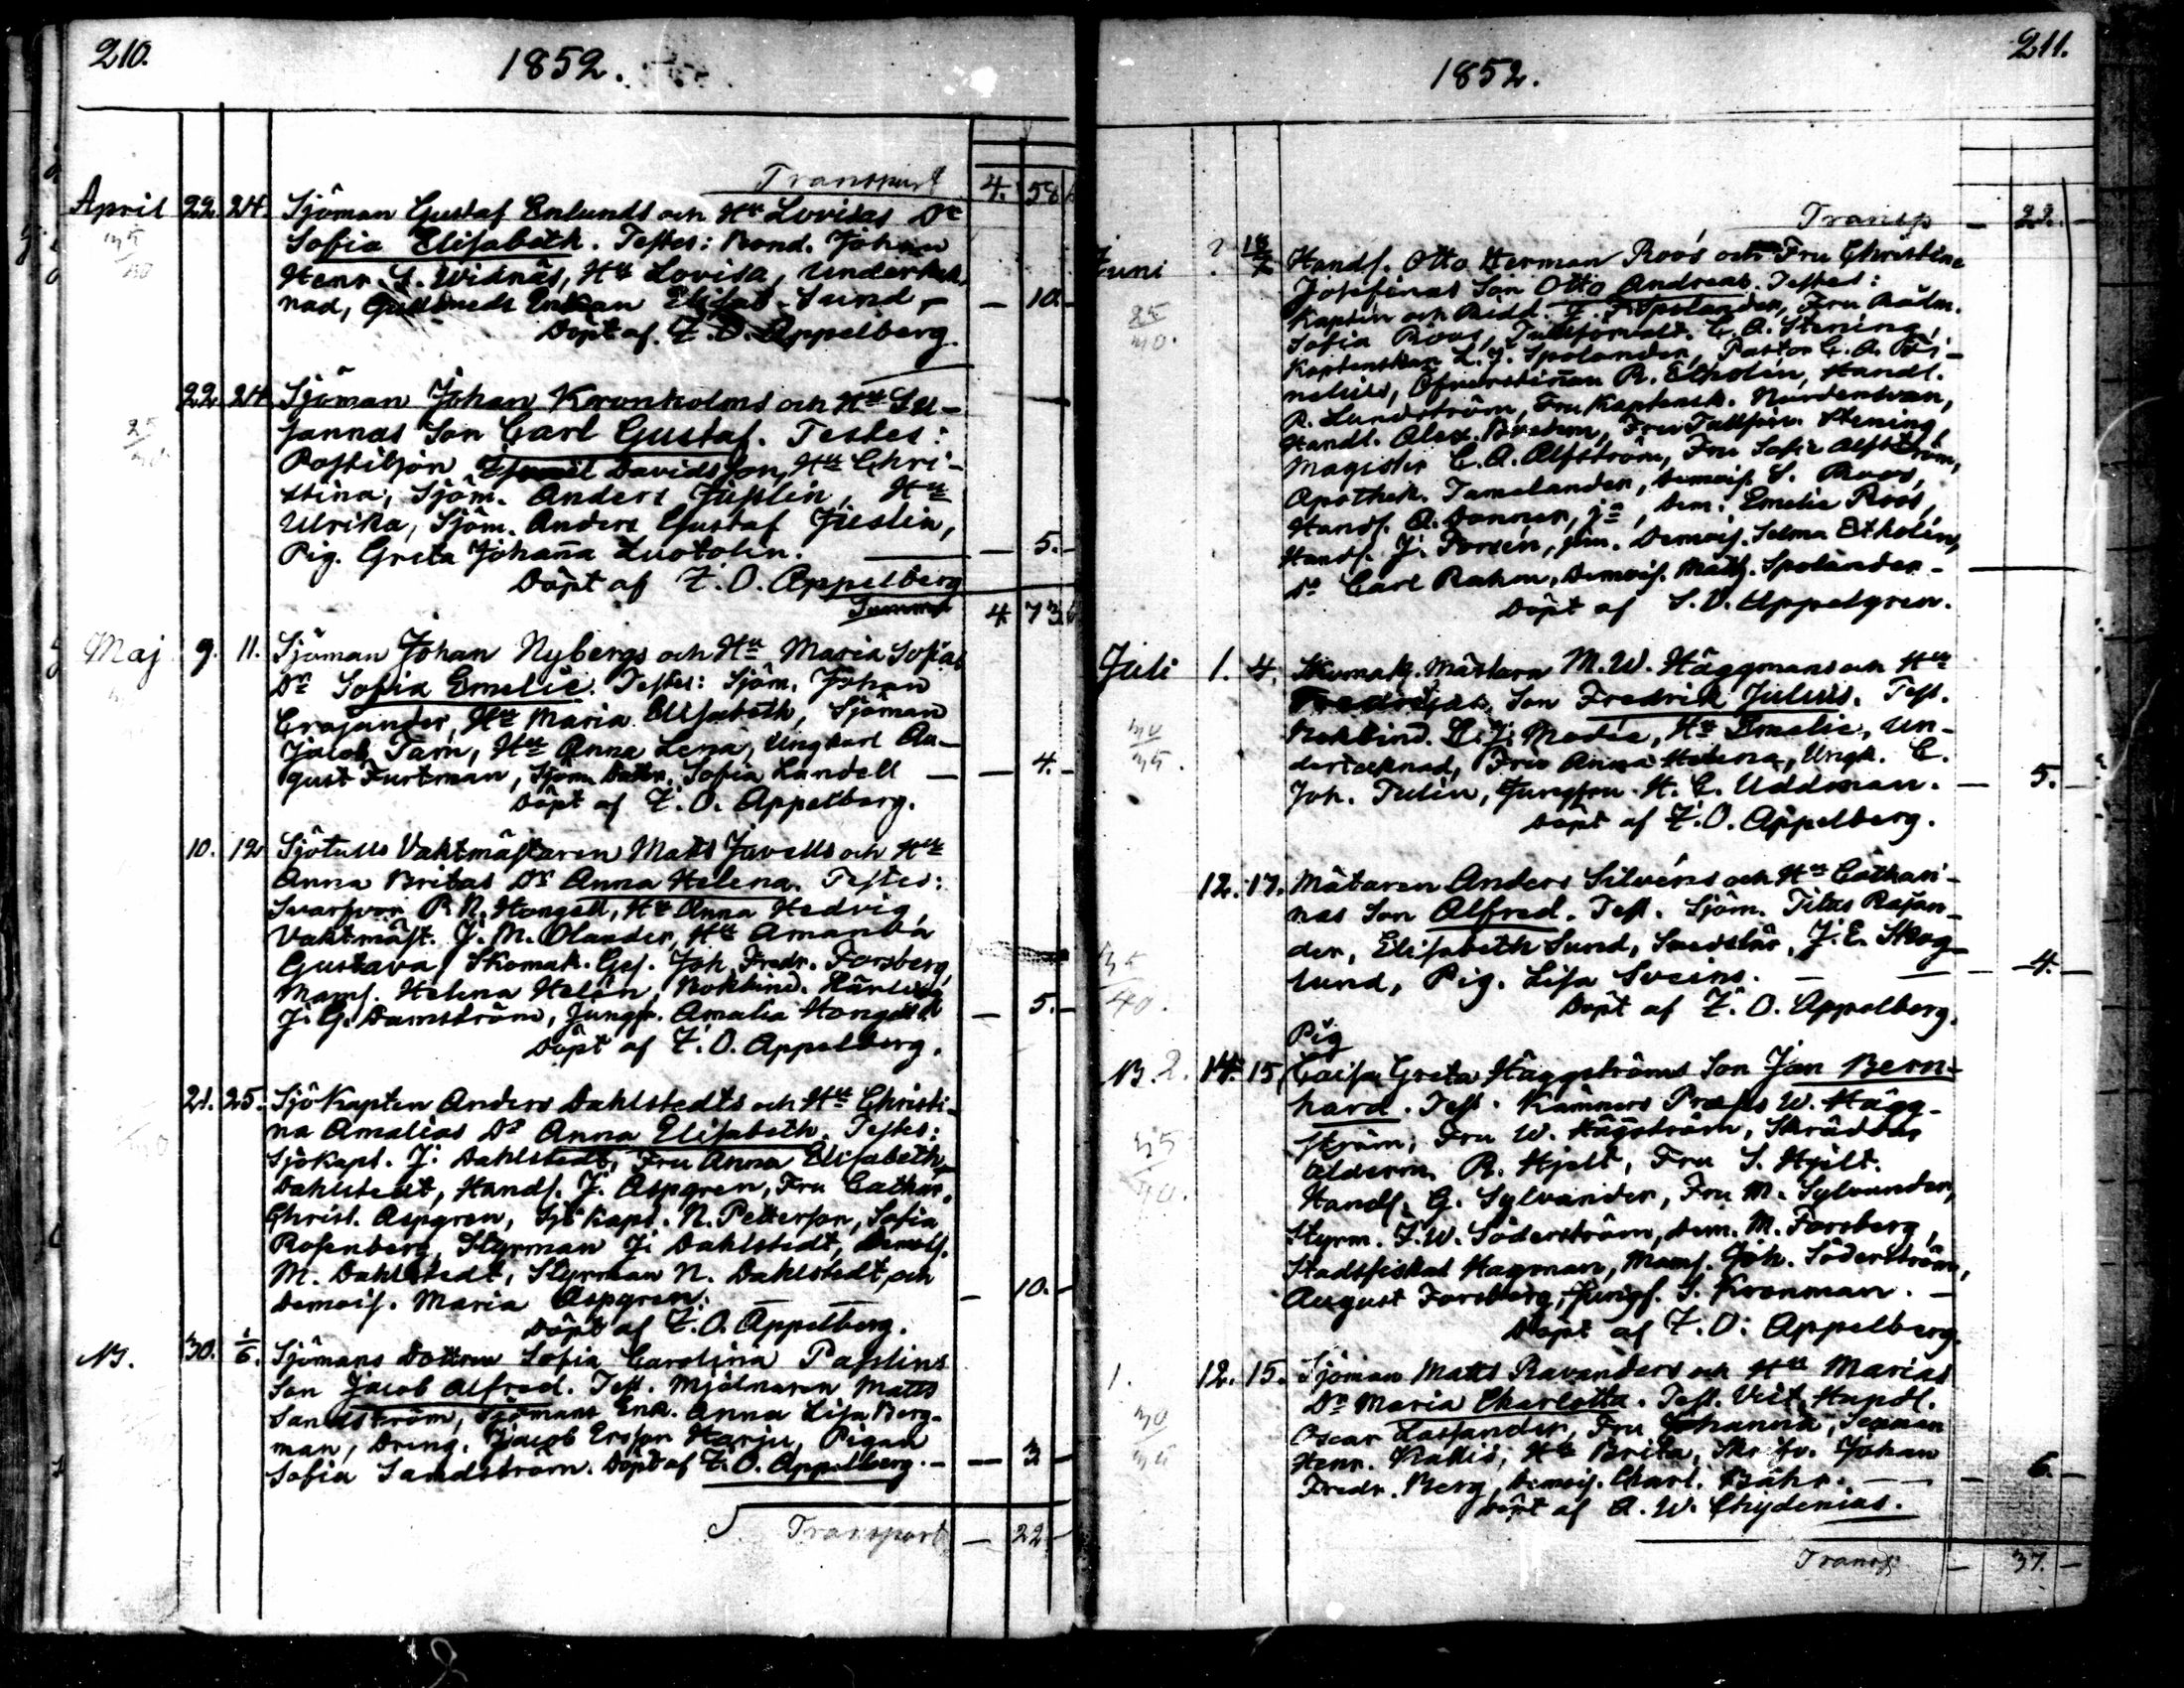 210.
1852.
Transport 4. 58
April 22. 24. Sjöman Gustaf Enlunds och Hu Lovisas Dr
Sofia Elisabeth. Testes: Bond. Johan
Henr. S. Widnäs, Hu Lovisa, Underteck-
nad, Enkan Elisab. Sund — — 10. —
Döpt af Z. O. Appelberg.
22. 24. Sjöman Johan Kronholms och Hu Su-
sannas Son Carl Gustaf. Testes:
Postiljon Davidsson, Hu Chri-
stina, Sjöm. Anders Juslin, Hu
Ulrika, Sjöm. Anders Gustaf Juslin,
Pig. Greta Johanna Luotolin. — — 5. —
Döpt af Z. O. Appelberg
Summa 4. 73.
Maj 9. 11. Sjöman Johan Nybergs och Hu Maria Sofias
Dr Sofia Emelie. Testes: Sjöm. Johan
Crajander, Hu Maria Elisabeth, Sjöman
Jacob Tarn, Hu Anna Lena, Ungkarl Au-
gust Furtman, Sjöm. Dottr. Sofia Landell — — 4. —
Döpt af Z. O. Appelberg.
10. 12. Sjötulls Vaktmästaren Matts Javells och Hu
Anna Britas Dr Anna Helena. Testes:
Svarfvar. P. N. Hongell, Hu Anna Hedvig,
Vaktmäst. J. M. Olander, Hu Amanda
Gustava, Skomak. Ges. Joh. Fredr. Forsberg,
Mams. Helena Helén, Bokbind. Lärling
J. G. Damström, Jungfr. Amalia Hongell — 5. —
Döpt af Z. O. Appelberg.
21. 25. Sjökapten Anders Dahlstedts och Hu Christi-
na Amalias Dr Anna Elisabeth. Testes:
Sjökapt. J. Dahlstedt, Fru Anna Elisabeth
Dahlstedt, Handl. J. Aspgren, Fru Cathar.
Christ. Aspgren, Sjökapt. N. Petterson, Sofia
Rosenberg, Styrman J. Dahlstedt, Demois.
M. Dahlstedt, Styrman N. Dahlstedt och
Demois. Maria Aspgren. — — — 10. —
Döpt af Z. O. Appelberg.
N. 30. 1/6. Sjömans Dottren Sofia Carolina Paslins
Son Jacob Alfred. Test. Mjölnaren Matts
Sandström, Sjömans Enk. Anna Lisa Berg-
man, Dreng. Jacob Ersson Harju, Pigan
Sofia Sandström. Döpt af Z. O. Appelberg. — — 3 —
Transport — 22 —
211.
1852.
Transp — 22. —
Juni Handl. Otto Herman Roos och Fru Christine
Josefinas Son Otto Andreas. Testes:
Kapten och Ridd. J. F. Spolander, Fru Rådm.
Sofia Roos, Tullförvalt. C. A. Stening,
Kaptenskan L. J. Spolander, Pastor C. A.
nelius, Öfverstinnan R. Etholén, Handl.
R. Lundström, Fru Kaptensk. Nordensvan,
Handl. Alex. Fru Tullförv. Stening,
Magister C. A. Alfström, Fru Sofie Alfström,
Apothek. Tamelander, Demois. S. Roos,
Handl. A. Donner, jr, Dem. Emelie Roos,
Handl. J. Forsén, jun. Demois. Selma Etholén,
Do Carl Rahm, Demois. Math. Spolander —
Döpt af S. V. Appelgren.
Juli 1. 4. Skomak. Mästarn M. W. Häggmans och Hu
Fredrikas Son Fredrik Julius. Test.
Bokbind. Modée, Hu Emelie, Un-
dertecknad, Fru Anna Helena, Ungk. C.
Joh. Tulin, Jungfru H. C. Uddman. — 5. —
Döpt af Z. O. Appelberg.
12. 17. Mätaren Anders Silvéns och Hu Cathari-
nas Son Alfred. Test. Sjöm. Titus Rajan-
der, Elisabeth Sund, J. E. Skog-
lund, Pig. Lisa Sveins. — — — 4. —
Döpt af Z. O. Appelberg.
Pig
N. 2. 14. 15. Caisa Greta Häggströms Son Jan Bern-
hard. Test. Kämners Præses W. Hägg-
ström, Fru W. Häggström, Skräddar
Ålderm. R. Hjelt, Fru S. Hjelt.
Handl. G. Sylvander, Fru M. Sylvander,
Styrm. F. W. Söderström, Dem. M. Forsberg,
Stadsfiskal Hagman, Mams. Joh. Söderström,
August Forsberg, Jungf. S. Kronman. —
Döpt af Z. O. Appelberg.
1. 12. 15. Sjöman Matts Ravanders och Hu Marias
Dr Maria Charlotta. Test. Vict. Handl.
Oscar Lassander, Fru Johanna, Sexman
Henr. Kallis, Hu Brita, Johan
Fredr. Berg, Demois. Charl. Bähr. — — 6. —
Döpt af A. W. Chydenius.
Transp. — 37. —